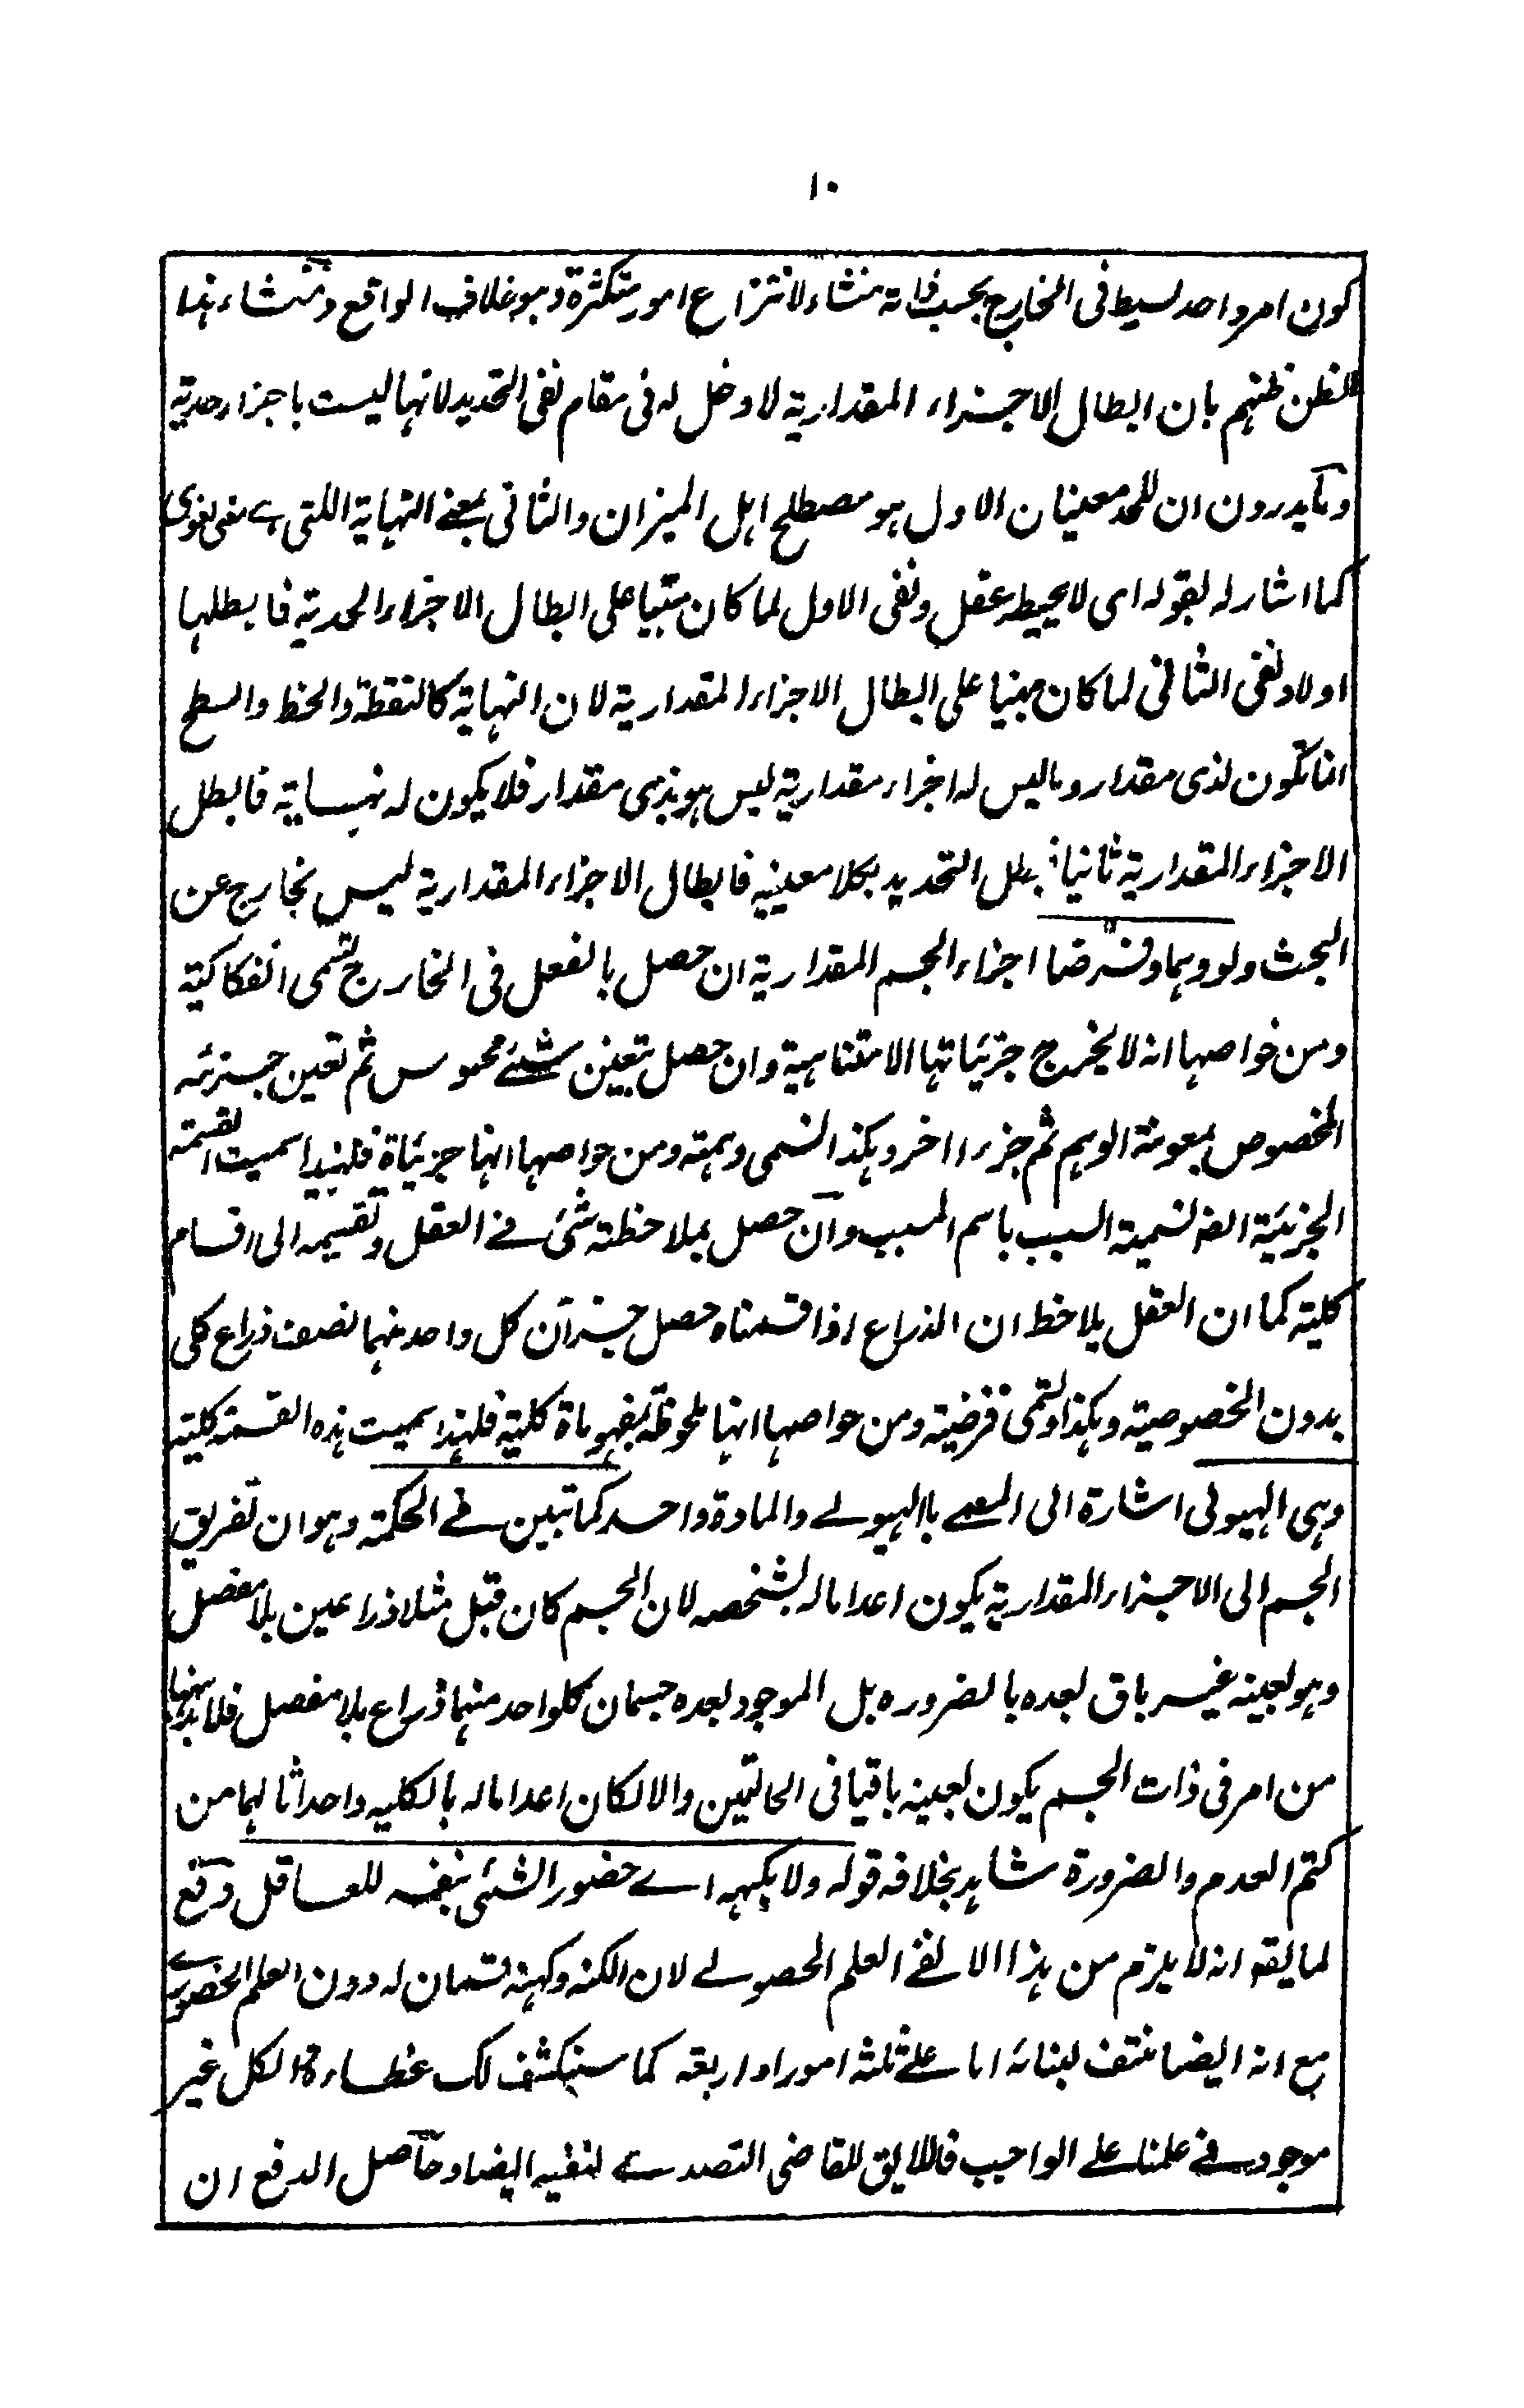 ١٠
كون امر واحد بسيط فى الخارج بحسب ذاته منشاء لانتزاع امور متكثرة وهو خلاف الواقع ومنشاء هذا
الظن ظنهم بان ابطال الاجزاء المقدارية لا دخل له فى مقام نفى التحديد لانها ليست باجزاء حدية
وما يدرون ان للحد معنيان الاول هو مصطلح اهل الميزان والثانى بمعنے النهاية اللتى هے معنى لغوى
كما اشار له بقوله اى لا يحيطه عقل ونفى الاول لما كان مبنيا على ابطال الاجزاء الحدية فابطلها
اولا ونفى الثانى لما كان مبنيا على ابطال الاجزاء المقدارية لان النهاية كالنقطة والخط والسطح
انما تكون لذى مقدار وما ليس له اجزاء مقدارية ليس هو بذى مقدار فلا يكون له نهاية فابطل
الاجزاء المقدارية ثانيا فبطل التحديد بكلا معنييه فابطال الاجزاء المقدارية ليس بخارج عن
البحث ولو وهما وفرضا اجزاء الجسم المقدارية ان حصل بالفعل فى الخارج تسمى انفكاكية
ومن خواصها انه لا يخرج جزئياتها الامتناهية وان حصل بتعين شئے محسوس ثم تعين جزئه
المخصوص بمعونة الوهم ثم جزءا اخر وهكذا تسمى وهمية ومن خواصها انها جزئياة فلهذا سميت القسمة
الجزئية ايضا تسمية السبب باسم المسبب وان حصل بملاحظة شئ فے العقل وتقسيمه الى اقسام
كلية كما ان العقل يلاحظ ان الذراع اذا قسمناه حصل جزآن كل واحد منهما نصف ذراع كلى
بدون الخصوصية وهكذا وتسمى فرضية ومن خواصها انها ملحوظة بمفهوماة كلية فلهذا سميت هذه القسمة كلية
وهى الهيولى اشارة الى المسمے باالهيولے والمادة واحد كما تبين فے الحكمة وهو ان تفريق
الجسم الى الاجزاء المقدارية يكون اعداما له بشخصه لان الجسم كان قبل مثلا ذراعين بلا مفصل
وهو بعينه غير باق بعده بالضروره بل الموجود بعده جسمان كلواحد منهما ذراع بلا مفصل فلابد ههنا
من امر فى ذات الجسم يكون بعينه باقيا فى الحالتين والا لكان اعداما له بالكليه واحداثا لهما من
كتم العدم والضرورة شاهد بخلافه قوله ولا بكنهه اے حضور الشئى بنفسه للعاقل دفع
لما يقه انه لا يلزم من هذا الا نفے العلم الحصولے لان الكنه وكنهه قسمان له دون العلم الحضورے
مع انه ايضا منتف لبنائه اما علے ثلثه امور او اربعه كما سنكشف لك غطاءه والكل غير
موجود فے علمنا علے الواجب فاللايق للقاضى التصدے لنفيه ايضا وحاصل الدفع ان